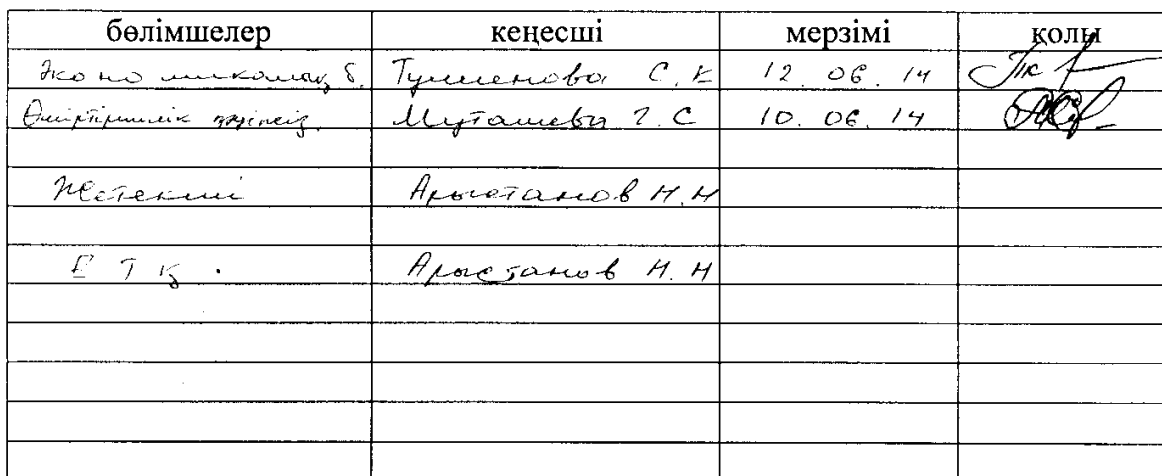 бөлімшелер кеңесші мерзімі қолы
Экономикалық б. Тушенова С.К 12 06. 14
Өміртіршілік қауіпсіз. Муташева Г.С 10. 06. 14
Жетекші Арыстанов Н.Н
Е Т Қ . Арыстанов Н.Н